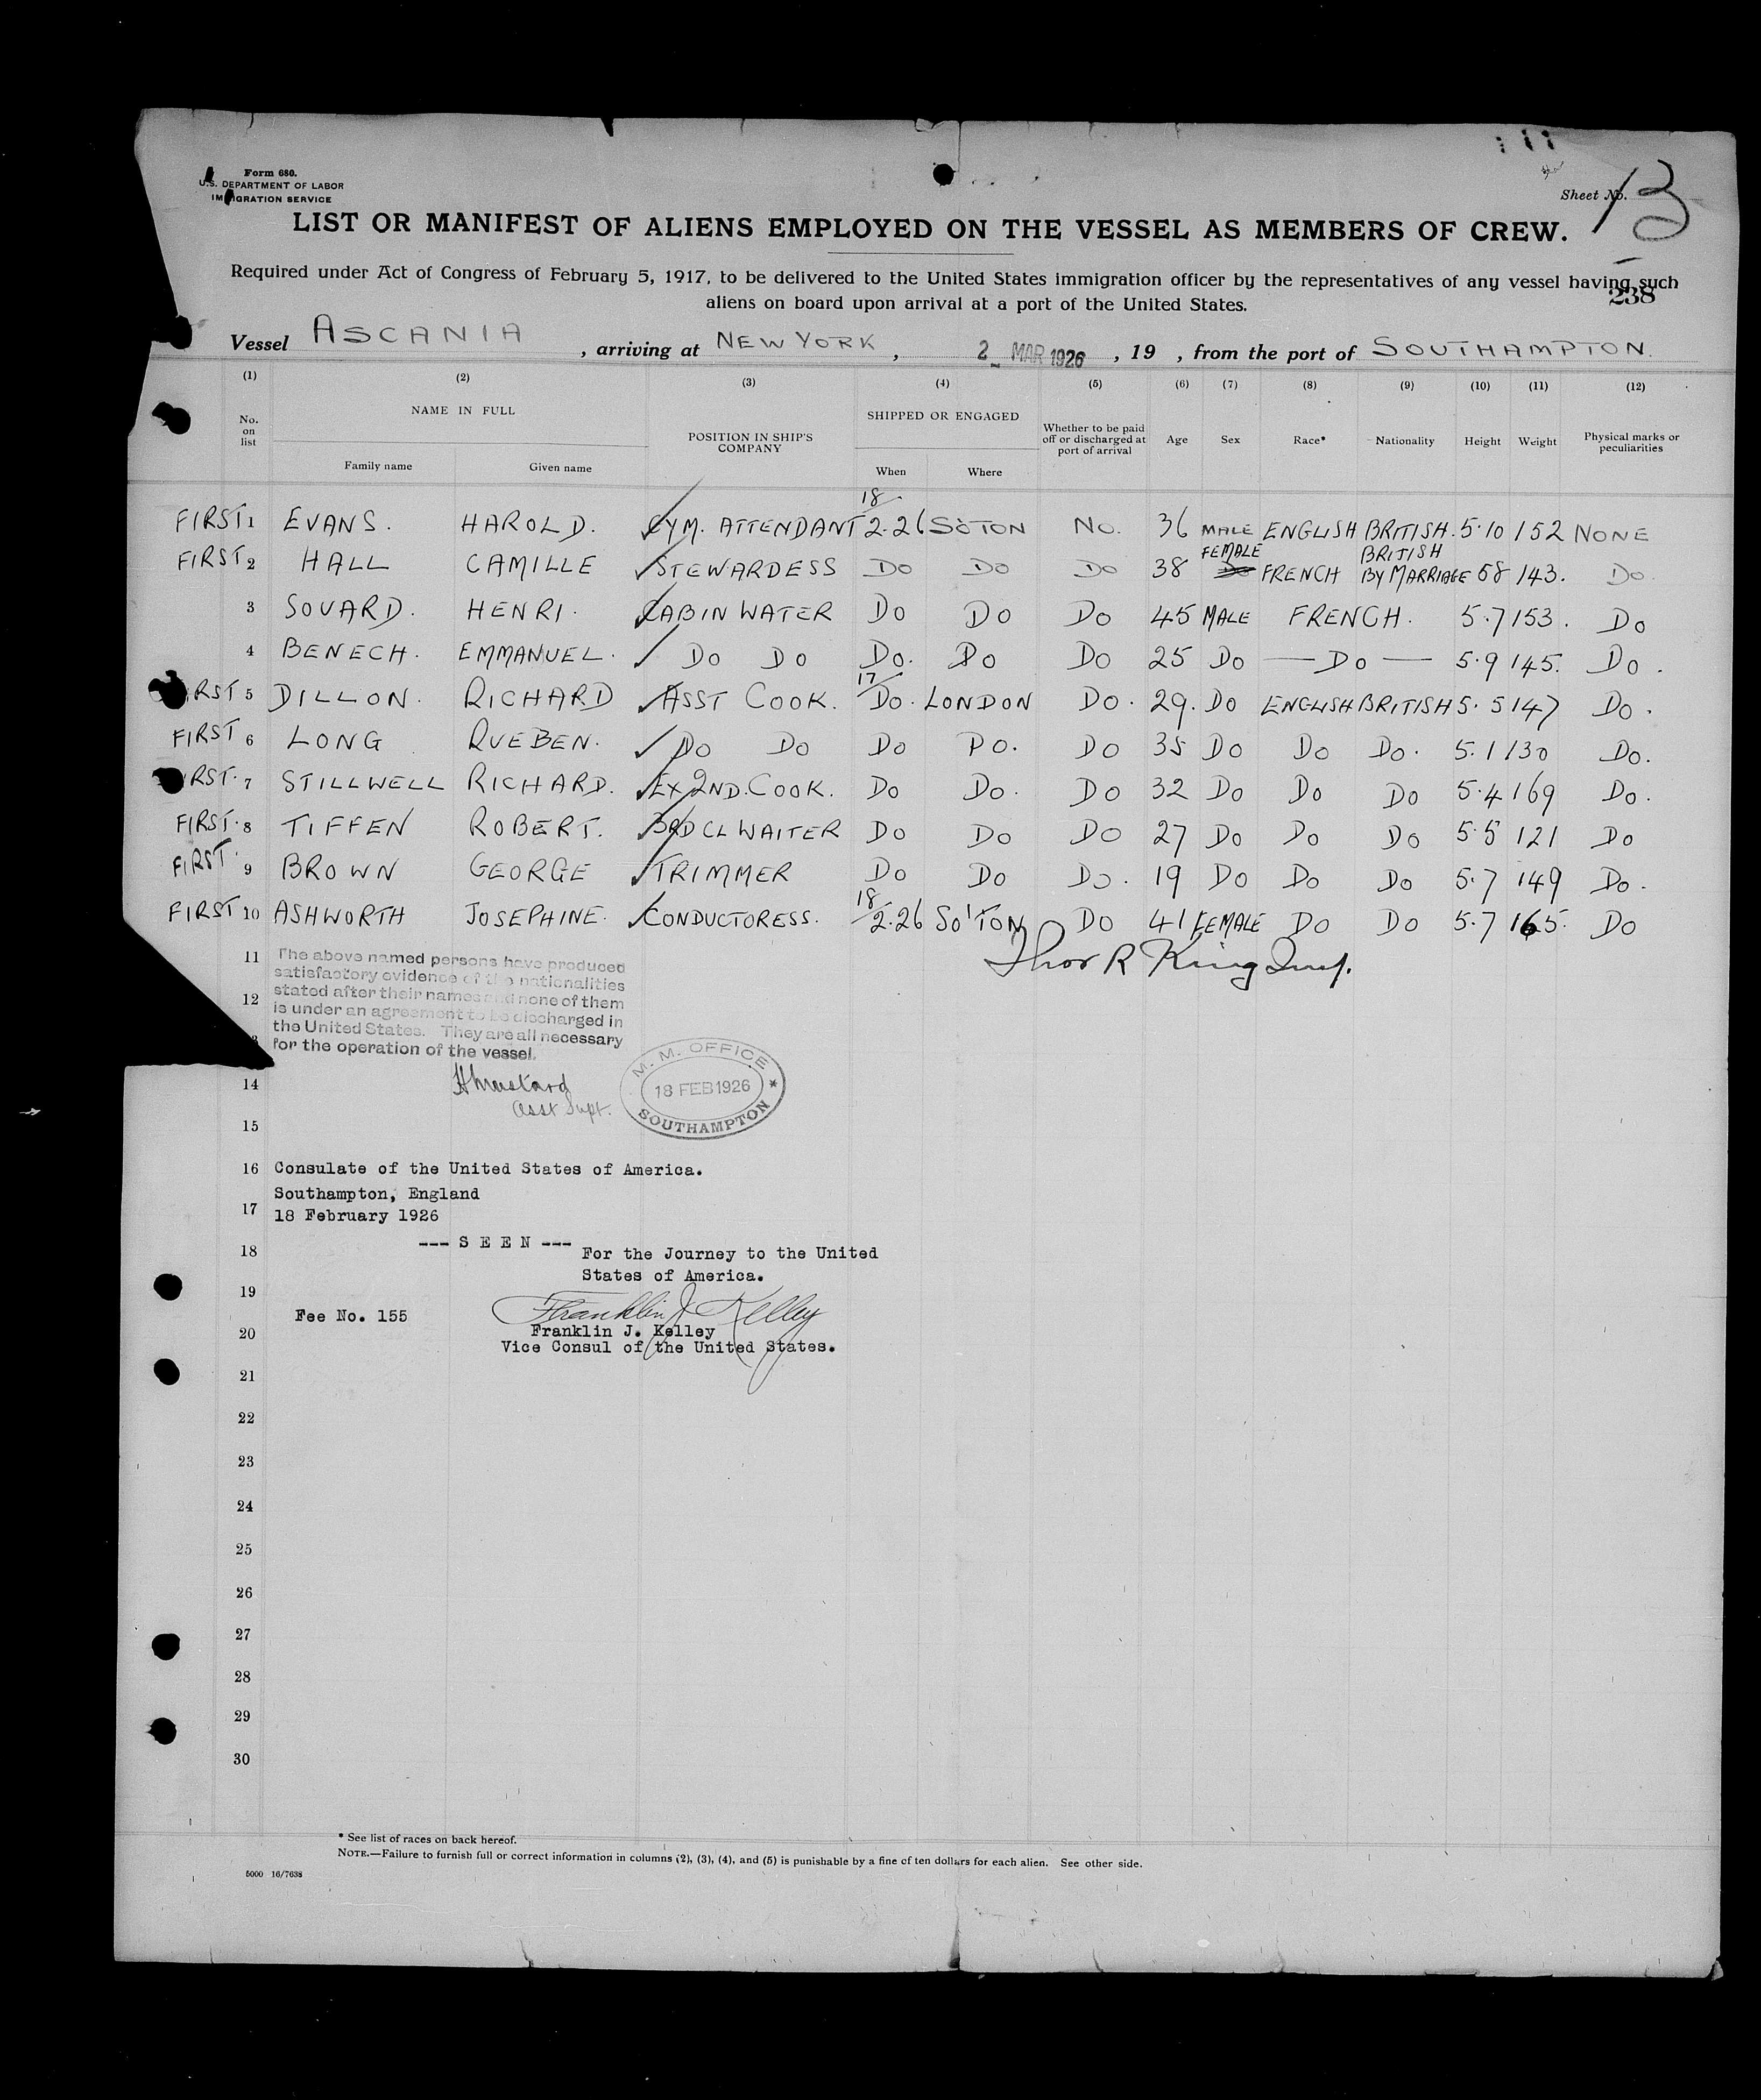 Form 680.
U.S. DEPARTMENT OF LABOR
IMMIGRATION SERVICE
Sheet No. 13
LIST OR MANIFEST OF ALIENS EMPLOYED ON THE VESSEL AS MEMBERS OF CREW.
Required under Act of Congress of February 5, 1917, to be delivered to the United States immigration officer by the representatives of any vessel having such
aliens on board upon arrival at a port of the United States.
238
Vessel ASCANIA, arriving at NEW YORK, 2 MAR 1926, 19 , from the port of SOUTHAMPTON.
(1) (2) (3) (4) (5) (6) (7) (8) (9) (10) (11) (12)
No. on list NAME IN FULL POSITION IN SHIP'S COMPANY SHIPPED OR ENGAGED Whether to be paid off or discharged at port of arrival Age Sex Race* Nationality Height Weight Physical marks or peculiarities
Family name Given name When Where
FIRST 1 EVANS. HAROLD. GYM. ATTENDANT 18/2.26 SOTON No. 36 MALE ENGLISH BRITISH. 5.10 152 NONE
FIRST 2 HALL CAMILLE STEWARDESS DO DO DO 38 FEMALE FRENCH BRITISH BY MARRIAGE 58 143. DO.
3 SOUARD. HENRI. CABIN WATER DO DO DO 45 MALE FRENCH. 5.7 153. DO
4 BENECH. EMMANUEL. DO DO DO. DO DO 25 DO — DO — 5.9 145. DO.
RST 5 DILLON. RICHARD ASST COOK. 17/DO. LONDON DO. 29. DO ENGLISH BRITISH 5.5 147 DO.
FIRST 6 LONG RUEBEN. DO DO DO DO. DO 35 DO DO DO. 5.1 130 DO.
RST. 7 STILLWELL RICHARD. EX 2ND. COOK. DO DO. DO 32 DO DO DO 5.4 169 DO.
FIRST. 8 TIFFEN ROBERT. 3RD CL WAITER DO DO DO 27 DO DO DO 5.5 121 DO
FIRST. 9 BROWN GEORGE TRIMMER DO DO DO. 19 DO DO DO 5.7 149 DO.
FIRST 10 ASHWORTH JOSEPHINE. CONDUCTORESS. 18/2.26 SO'TON DO 41 FEMALE DO DO 5.7 165. DO
R King Insp.
11 The above named persons have produced
satisfactory evidence of the nationalities
12 stated after their names and none of them
is under an agreement to be discharged in
the United States. They are all necessary
for the operation of the vessel.
14 H Mustard
Asst Supt.
M. M. OFFICE
18 FEB 1926
SOUTHAMPTON
15
16 Consulate of the United States of America.
Southampton, England
17 18 February 1926
--- S E E N ---
18 For the Journey to the United
States of America.
19 Franklin J Kelley
Fee No. 155
20 Franklin J. Kelley
Vice Consul of the United States.
21
22
23
24
25
26
27
28
29
30
* See list of races on back hereof.
NOTE.—Failure to furnish full or correct information in columns (2), (3), (4), and (5) is punishable by a fine of ten dollars for each alien. See other side.
5000 16/7638